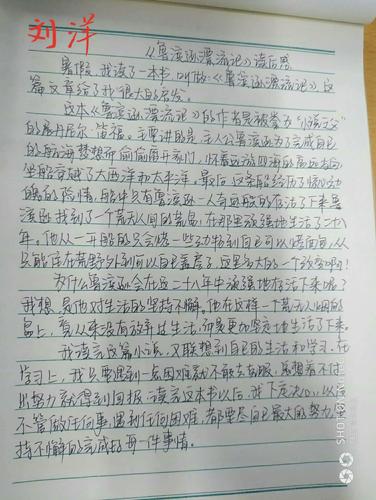 刘洋
《鲁滨逊漂流记》读后感
暑假,我读了一本书,叫做《鲁滨逊漂流记》这
篇文章给了我很大的启发。
这本《鲁滨逊漂流记》的作者是被誉为"小说之父"
的丹尼尔·笛福。主要讲的是,主人公鲁滨逊为了完成自己
的航海梦想而偷偷离开家门,怀着远游四海的高远志向
坐船穿越了大西洋和太平洋。最后,这条船经历了惊心动
魄的险情,船中只有鲁滨逊一人奇迹般的存活了下来鲁
滨逊找到了一个荒无人间的荒岛,在那里顽强地生活了二十八
年。他从一开始的只会做一些到自己可以烤面包,从
只能住在荒野外到可以自己盖房子,这是多大的一个改变啊!
为什么鲁滨逊会在这二十八年中顽强地存活下来呢?
我想,是他对生活的坚持不懈。他在这样一个荒无人烟的
岛上,看从来没有放弃过生活,而是更加坚定地生活了下来。
我读完这篇小说,又联想到自己的生活和学习。在
学习上,我只要遇到一点困难就不敢去克服,总想着不付
出努力就得到回报。读完这本书以后,我下定决心,以后
不管做任何事,遇到任何困难,都要尽自己最大的努力,坚
持不懈的完成好每一件事情。
SHOT ON